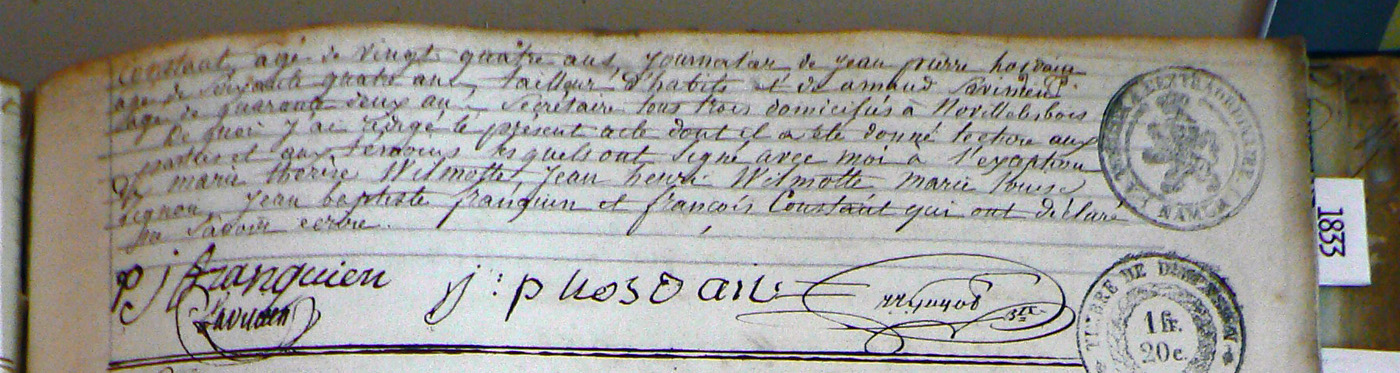 Constant, agé de vingt quatre ans, Journalier de jean pierre hosdain
agé de soixante quatre ans, tailleur d'habits et de amand Lavinden
agé de quarante deux ans, Secrétaire tous trois domicifiés à Novillelesbois
De quoi j'ai rédigé le présent acte dont il a été donné lecture aux
parties et aux témoins lesquels ont signé avec moi à l'exeption
de marie thérèse Wilmotte jean henri Wilmotte marie louise
pignon jean baptiste franquien et françois Constant qui ont déclaré
ne savoir ecrire.
p j franquien j: p hosdain
EXTRAORDINAIRE
NAMUR
TIMBRE DE DIMENSION
1 fr.
20 c.
1833